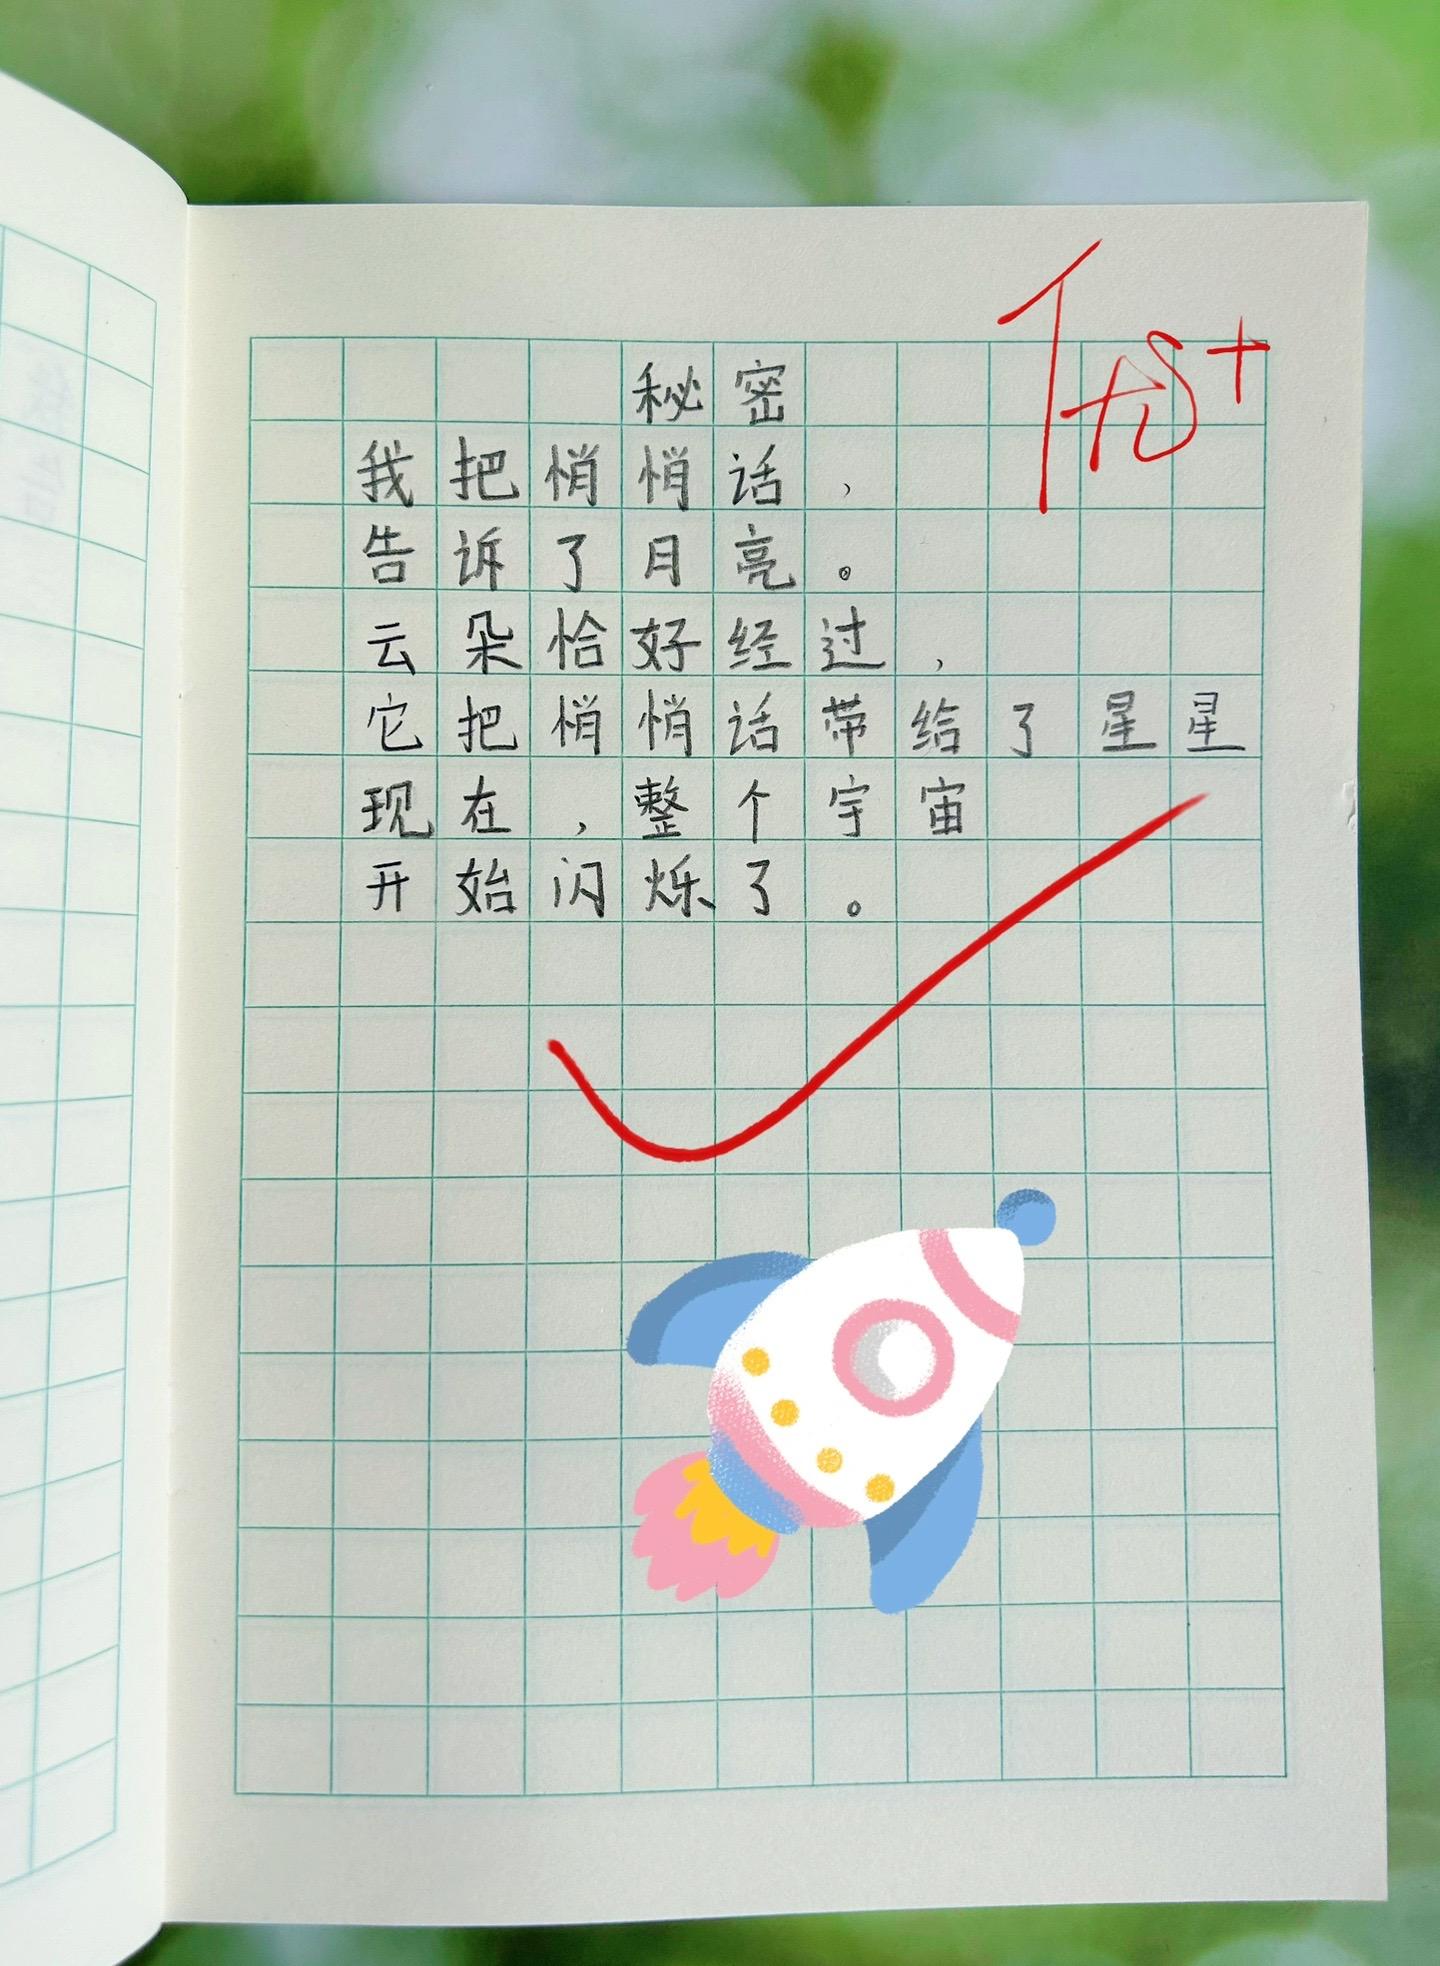 秘密
我把悄悄话，
告诉了月亮。
云朵恰好经过，
它把悄悄话带给了星星
现在，整个宇宙
开始闪烁了。